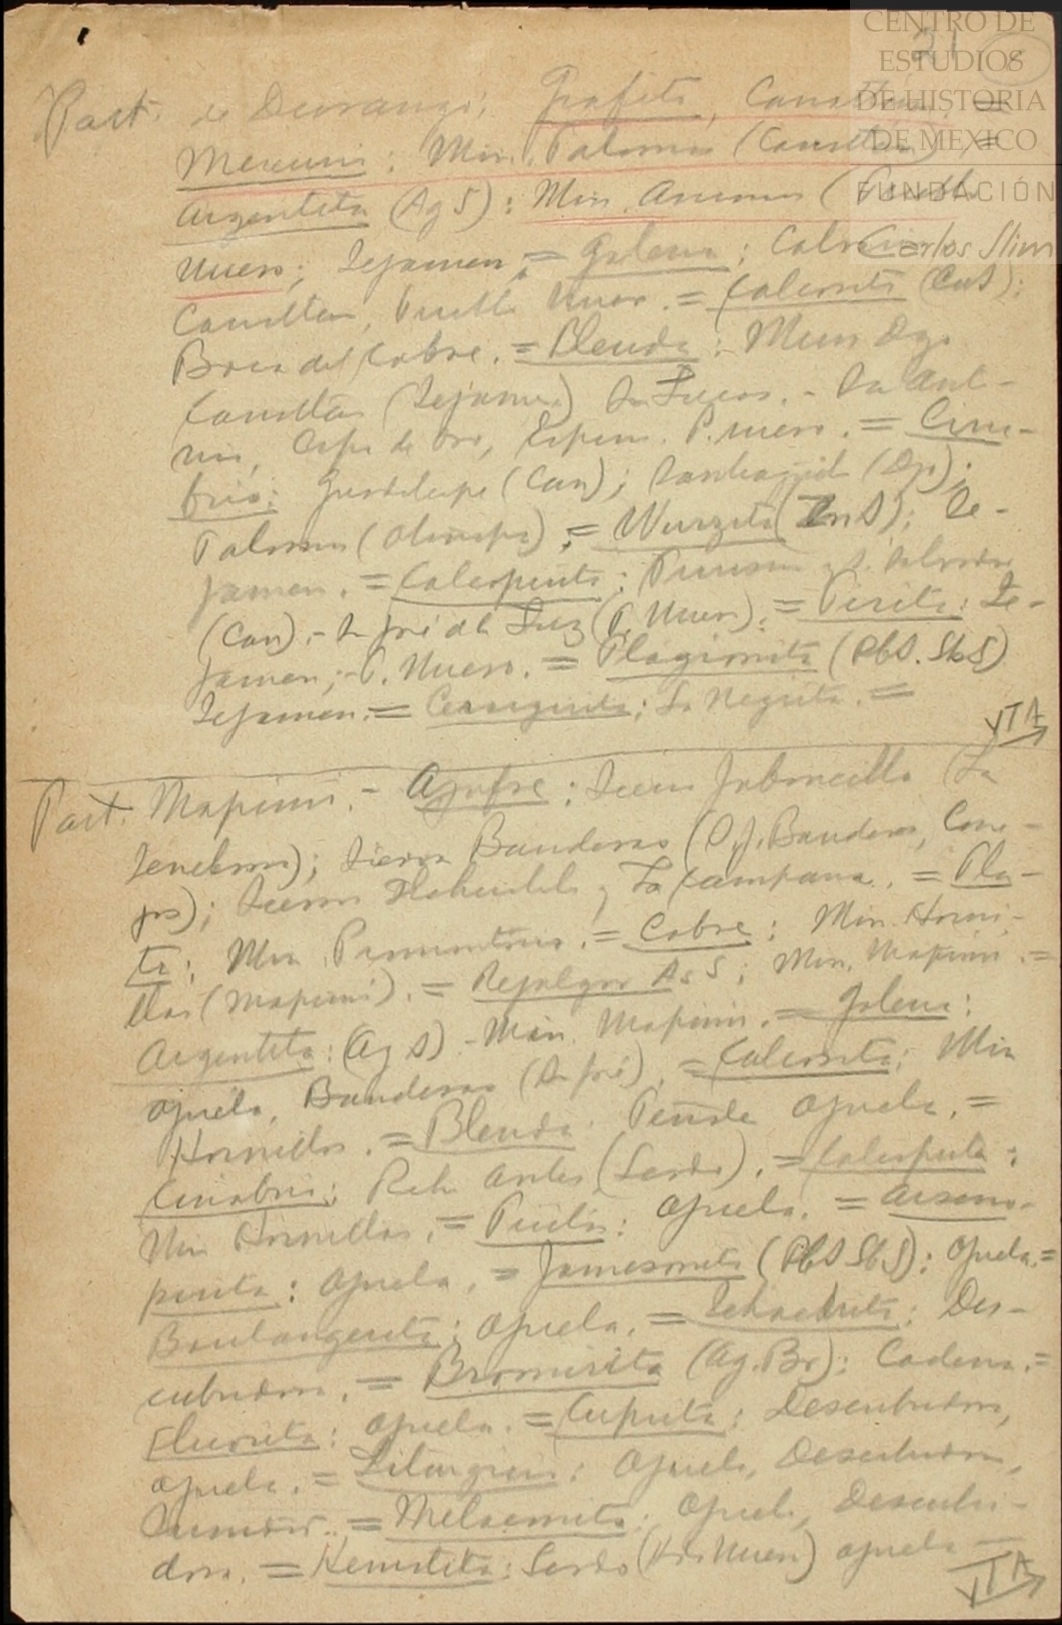 CENTRO DE
ESTUDIOS
DE HISTORIA
DE MEXICO
FUNDACIÓN
Carlos Slim
21
Part. de Durango: Grafito, Canatlán. =
Mercurio: Min. Paloma (Canatlán) =
Argentita (AgS): Min. (Pueblo
Nuevo; Tejamen. = Galena:
Canatlan, Pueblo Nuevo. = Calcosita (CuS):
Boca del Cobre. = Blenda: Mun Dgo
Canatlán (Tejamen) Sn Lucas. - Sn Anto-
nio, Copa de Oro, P. nuevo. = Cina-
brio: Guadalupe (Can); (Dgo);
Paloma ( ). = Wurzita (ZnS): Te-
jamen. = Calcopirita: y S. Salvador
(Can). - Sn José de la Luz (P. Nuevo). = Pirita: Te-
jamen; - P. Nuevo. = Plagionita (PbS. SbS)
Tejamen. = Cerargirita: La Negrita. =
VTA
Part. Mapimi. - Azufre: Sierra Jaboncillo (La
Tenebrosa); Sierra Banderas (S. J. Banderas, Cone-
jos); Sierra Tlahualilo y La Campana. = Pla-
ta: Min. Promontorio. = Cobre: Min. Horni-
llas (Mapimi). = Rejalgar AsS; Min. Mapimi. =
Argentita: (AgS) - Min. Mapimi. = Galena:
Ojuela, Banderas (Sn José). = Calcosita: Min
Hornillas. = Blenda. Ojuela. =
Cinabrio: (Lerdo). = Calcopirita:
Min Hornillas. = Pirita: Ojuela. = Arseno-
pirita: Ojuela. = Jamesonita (PbS SbS): Ojuela. =
Boulangerita: Ojuela. = Tetraedrita: Des-
cubridora. = Bromirita (Ag. Br): Cadena. =
Fluorita: Ojuela. = Cuprita: Descubridora,
Ojuela. = Litargirio: Ojuela, Descubridora,
= Melaconita: Ojuela, Descubri-
dora. = Hematita: Lerdo ( Nuevo) Ojuela
VTA